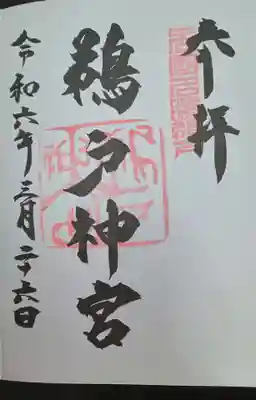 奉拝
鵜戸神宮
令和六年三月二十六日